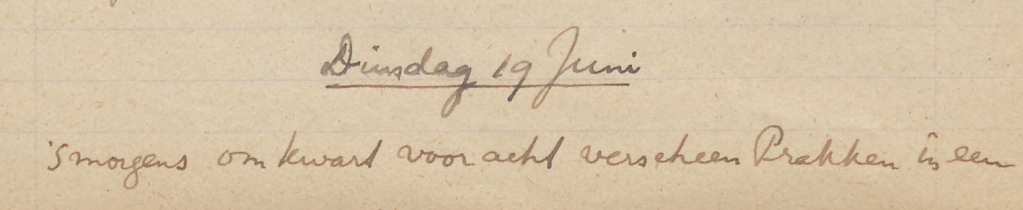 Dinsdag 19 Juni
's morgens om kwart voor acht verscheen Prakken in een